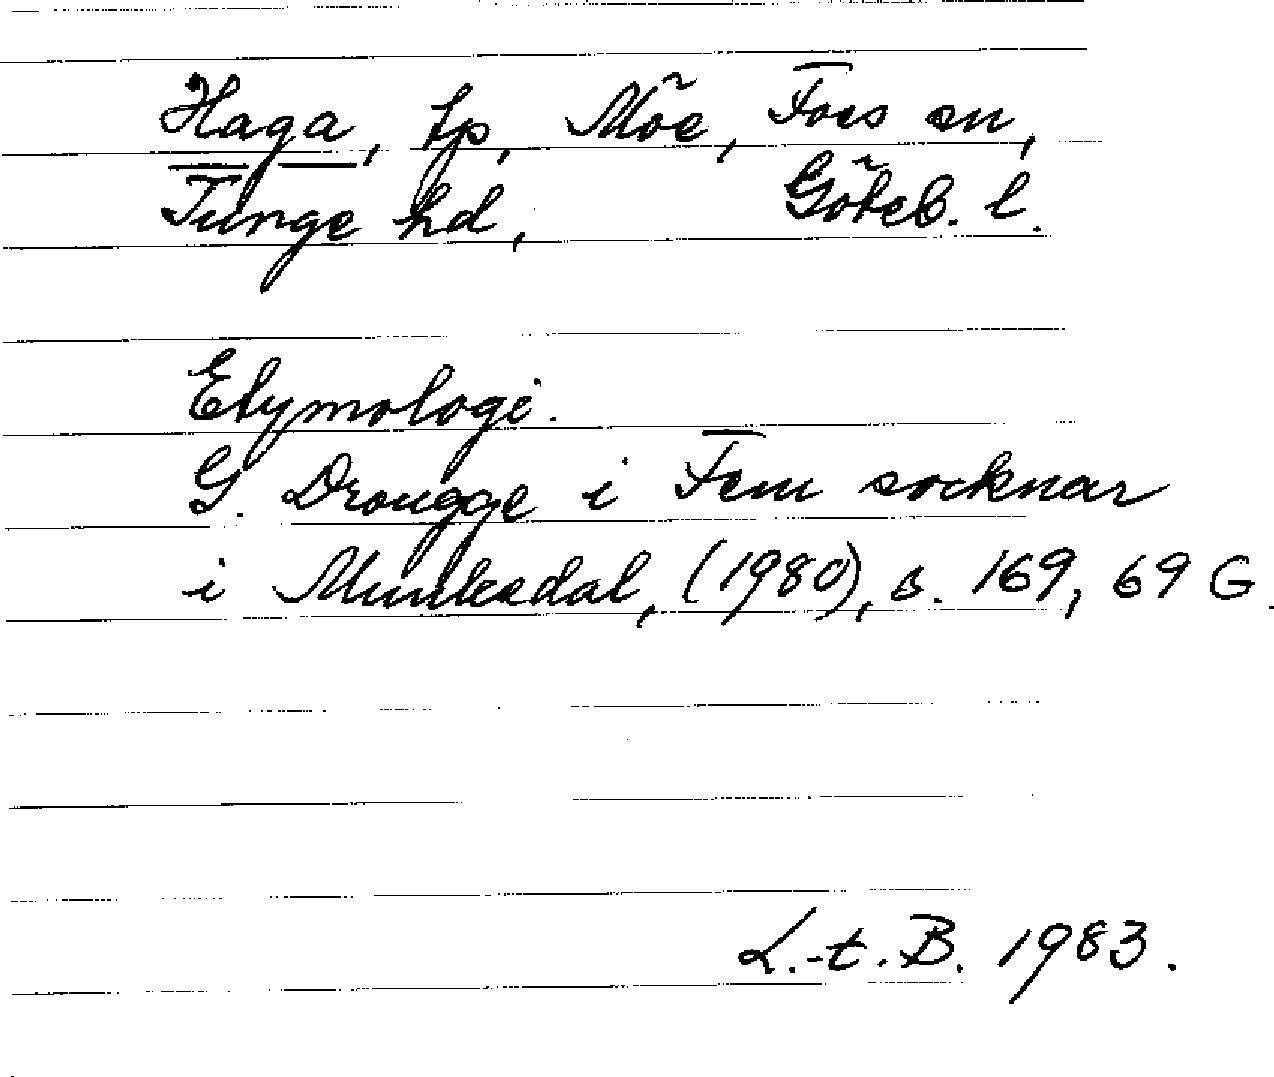 Haga, tp, Möe, Foss sn,
Tunge hd, Göteb. l.
Etymologi.
G. Drougge i Fem socknar
i Munkedal, (1980), s. 169, 69 G.
L.-t. B. 1983.